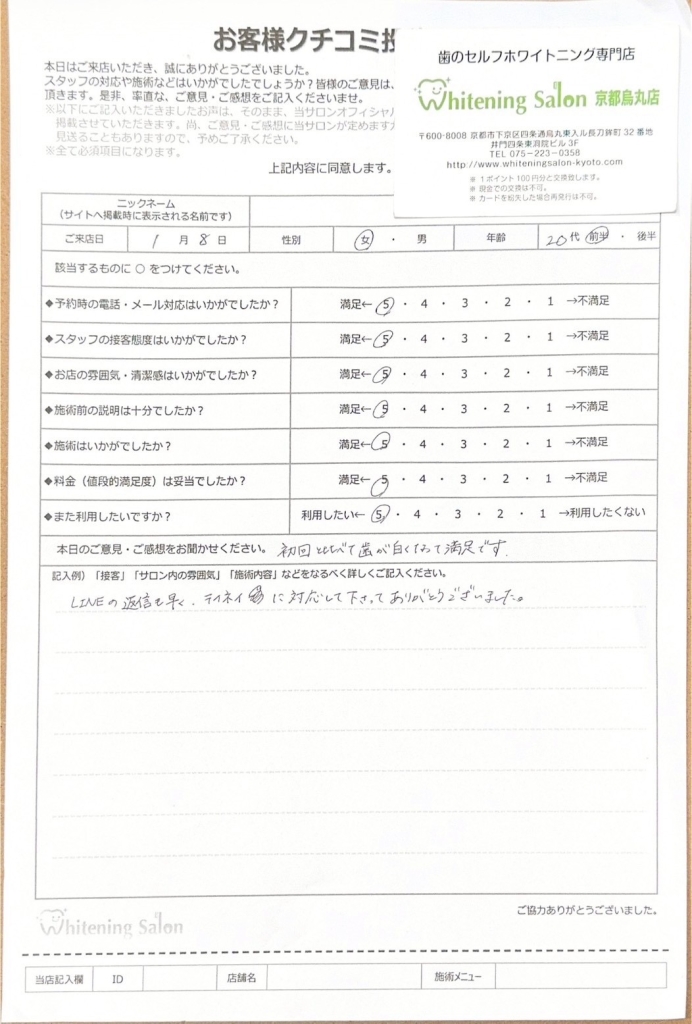 お客様クチコミ投
歯のセルフホワイトニング専門店
Whitening Salon 京都烏丸店
〒600-8008 京都市下京区四条通烏丸東入ル長刀鉾町 32 番地
井門四条東洞院ビル 3F
TEL 075-223-0358
http://www.whiteningsalon-kyoto.com
※ 1ポイント100円分と交換致します。
※ 現金での交換は不可。
※ カードを紛失した場合再発行は不可。
本日はご来店いただき、誠にありがとうございました。
スタッフの対応や施術などはいかがでしたでしょうか？皆様のご意見は、
頂きます。是非、率直な、ご意見・ご感想をご記入くださいませ。
※以下にご記入いただきましたお声は、そのまま、当サロンオフィシャル
掲載させていただきます。尚、ご意見・ご感想に当サロンが定めます
見送ることもありますので、予めご了承ください。
※全て必須項目になります。
上記内容に同意します。
ニックネーム
（サイトへ掲載時に表示される名前です）
ご来店日 1 月 8 日 性別 女 ・ 男 年齢 20 代 前半 ・ 後半
該当するものに ○ をつけてください。
◆予約時の電話・メール対応はいかがでしたか？ 満足← 5 ・ 4 ・ 3 ・ 2 ・ 1 →不満足
◆スタッフの接客態度はいかがでしたか？ 満足← 5 ・ 4 ・ 3 ・ 2 ・ 1 →不満足
◆お店の雰囲気・清潔感はいかがでしたか？ 満足← 5 ・ 4 ・ 3 ・ 2 ・ 1 →不満足
◆施術前の説明は十分でしたか？ 満足← 5 ・ 4 ・ 3 ・ 2 ・ 1 →不満足
◆施術はいかがでしたか？ 満足← 5 ・ 4 ・ 3 ・ 2 ・ 1 →不満足
◆料金（値段的満足度）は妥当でしたか？ 満足← 5 ・ 4 ・ 3 ・ 2 ・ 1 →不満足
◆また利用したいですか？ 利用したい← 5 ・ 4 ・ 3 ・ 2 ・ 1 →利用したくない
本日のご意見・ご感想をお聞かせください。 初回と比べて歯が白くなって満足です.
記入例）「接客」「サロン内の雰囲気」「施術内容」などをなるべく詳しくご記入ください。
LINEの返信も早く、テイネイ に対応して下さってありがとうございました。
ご協力ありがとうございました。
Whitening Salon
当店記入欄 ID 店舗名 施術メニュー